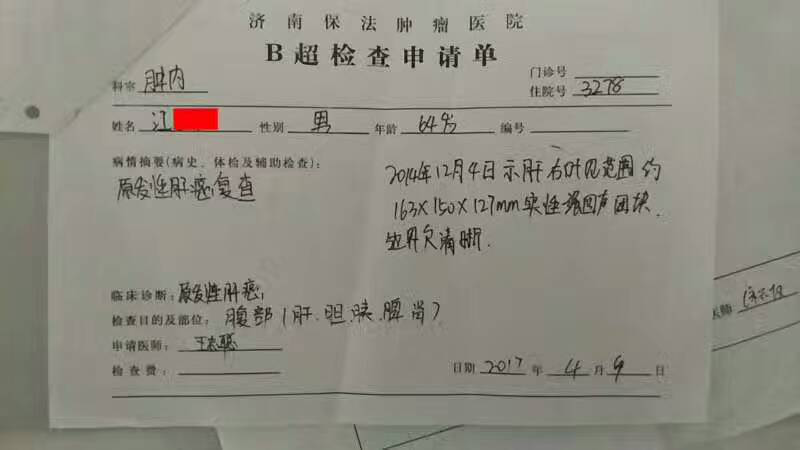 济南保法肿瘤医院
B超检查申请单
科室 肿内
门诊号
住院号 3278
姓名 江 性别 男 年龄 64岁 编号
病情摘要(病史、体检及辅助检查):
原发性肝癌复查
2014年12月4日示肝右叶见范围约
163×150×127mm实性强回声团块.
边界欠清晰.
临床诊断:原发性肝癌
检查目的及部位:腹部(肝.胆.胰.脾.肾)
申请医师:
检查费:
日期 2017年4月9日
医师